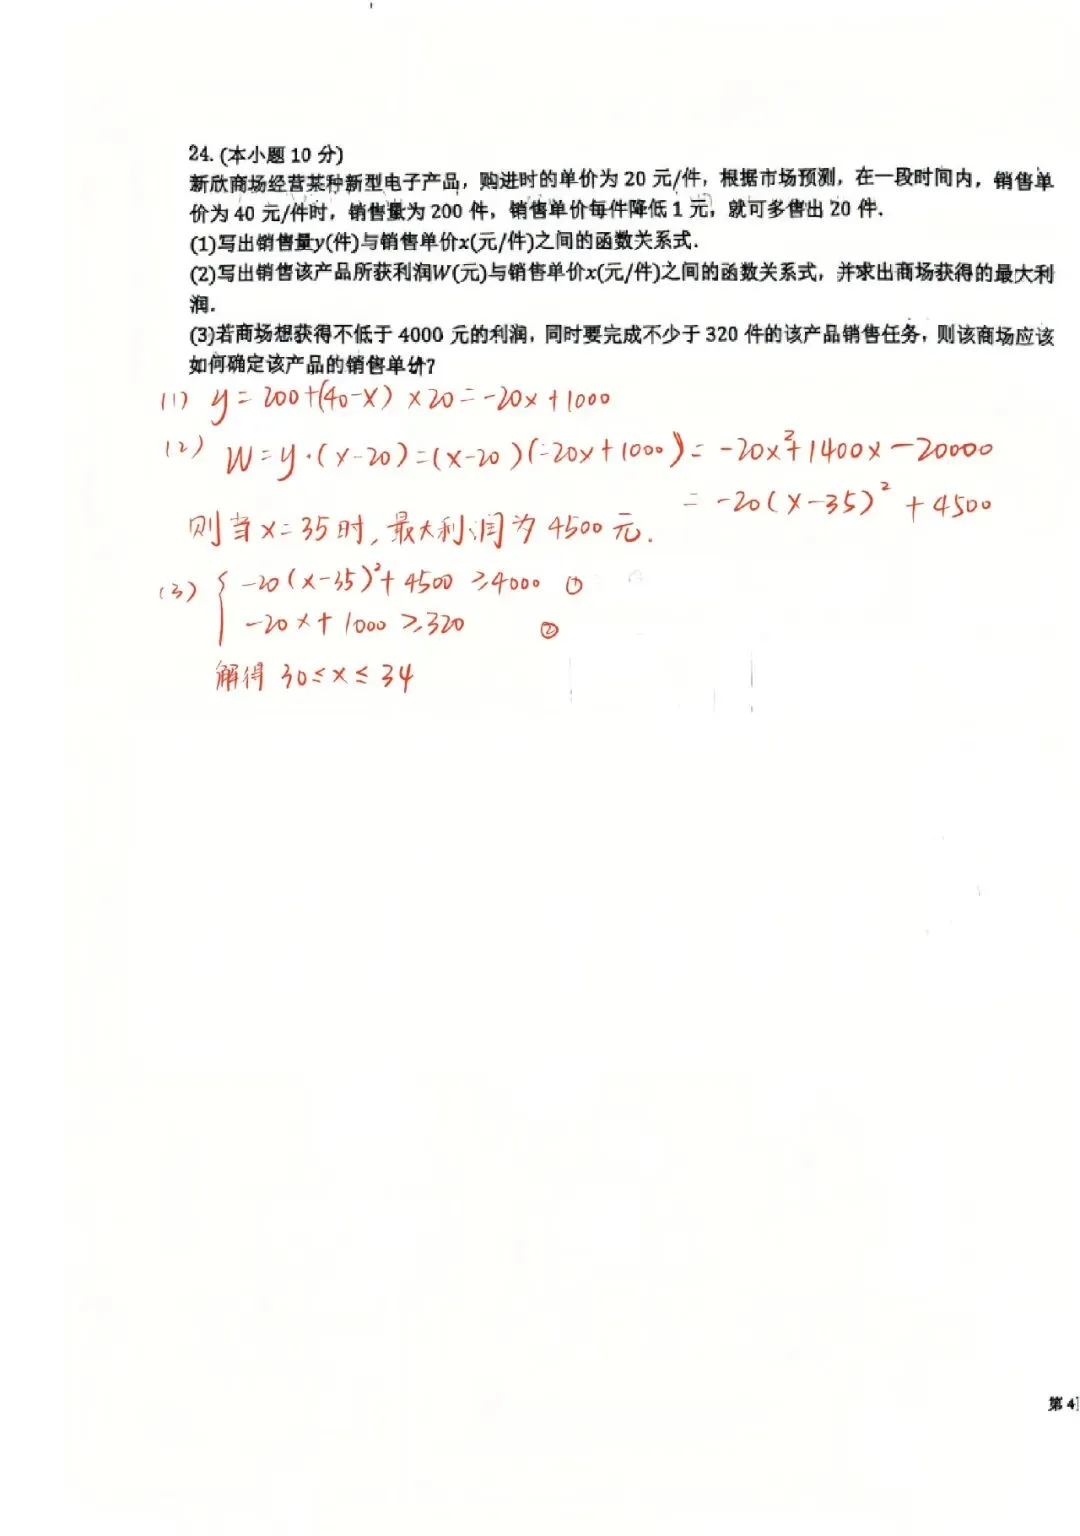 24. (本小题 10 分)
新欣商场经营某种新型电子产品，购进时的单价为 20 元/件，根据市场预测，在一段时间内，销售单
价为 40 元/件时，销售量为 200 件，销售单价每件降低 1 元，就可多售出 20 件.
(1)写出销售量y(件)与销售单价x(元/件)之间的函数关系式.
(2)写出销售该产品所获利润W(元)与销售单价x(元/件)之间的函数关系式，并求出商场获得的最大利
润.
(3)若商场想获得不低于 4000 元的利润，同时要完成不少于 320 件的该产品销售任务，则该商场应该
如何确定该产品的销售单价?
(1) y = 200+(40-x) ×20 = -20x+1000
(2) W = y·(x-20) = (x-20)(-20x+1000) = -20x²+1400x-20000
= -20(x-35)²+4500
则当x=35时, 最大利润为4500元.
(3) { -20(x-35)²+4500 ≥4000 ①
-20x+1000 ≥320 ②
解得 30≤x≤34
第 4